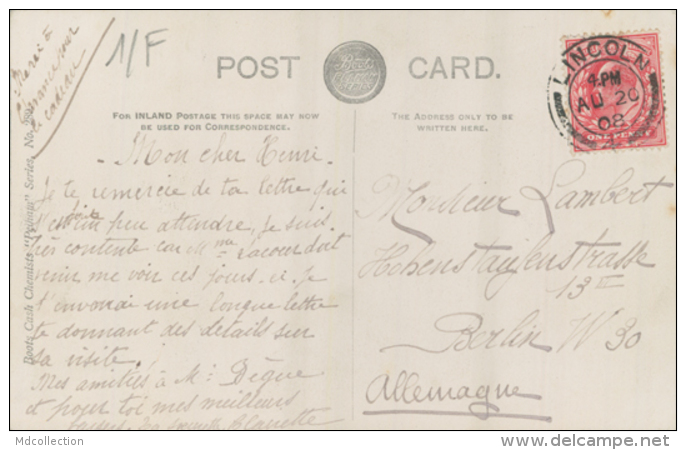 1/F
POST CARD.
FOR INLAND POSTAGE THIS SPACE MAY NOW
BE USED FOR CORRESPONDENCE.
THE ADDRESS ONLY TO BE
WRITTEN HERE.
LINCOLN
4. PM
AU 20
08
ONE PENNY
Boots Cash Chemists "Pelham" Series. No.
Merci à
France pour
le cadeau
Mon cher Henri.
Je te remercie de ta lettre qui
s'est un peu attendre, je suis
très contente car Mme Lacour doit
venir me voir ces jours-ci. Je
t'envorai une longue lettre
te donnant des détails sur
sa visite.
Mes amitiés à M: Dègue
et pour toi mes meilleurs
baisers. Ta Blanette
Monsieur Lambert
Hohenstaufenstrasse
13 III
Berlin W 30
Allemagne
Mdcollection
www.delcampe.net